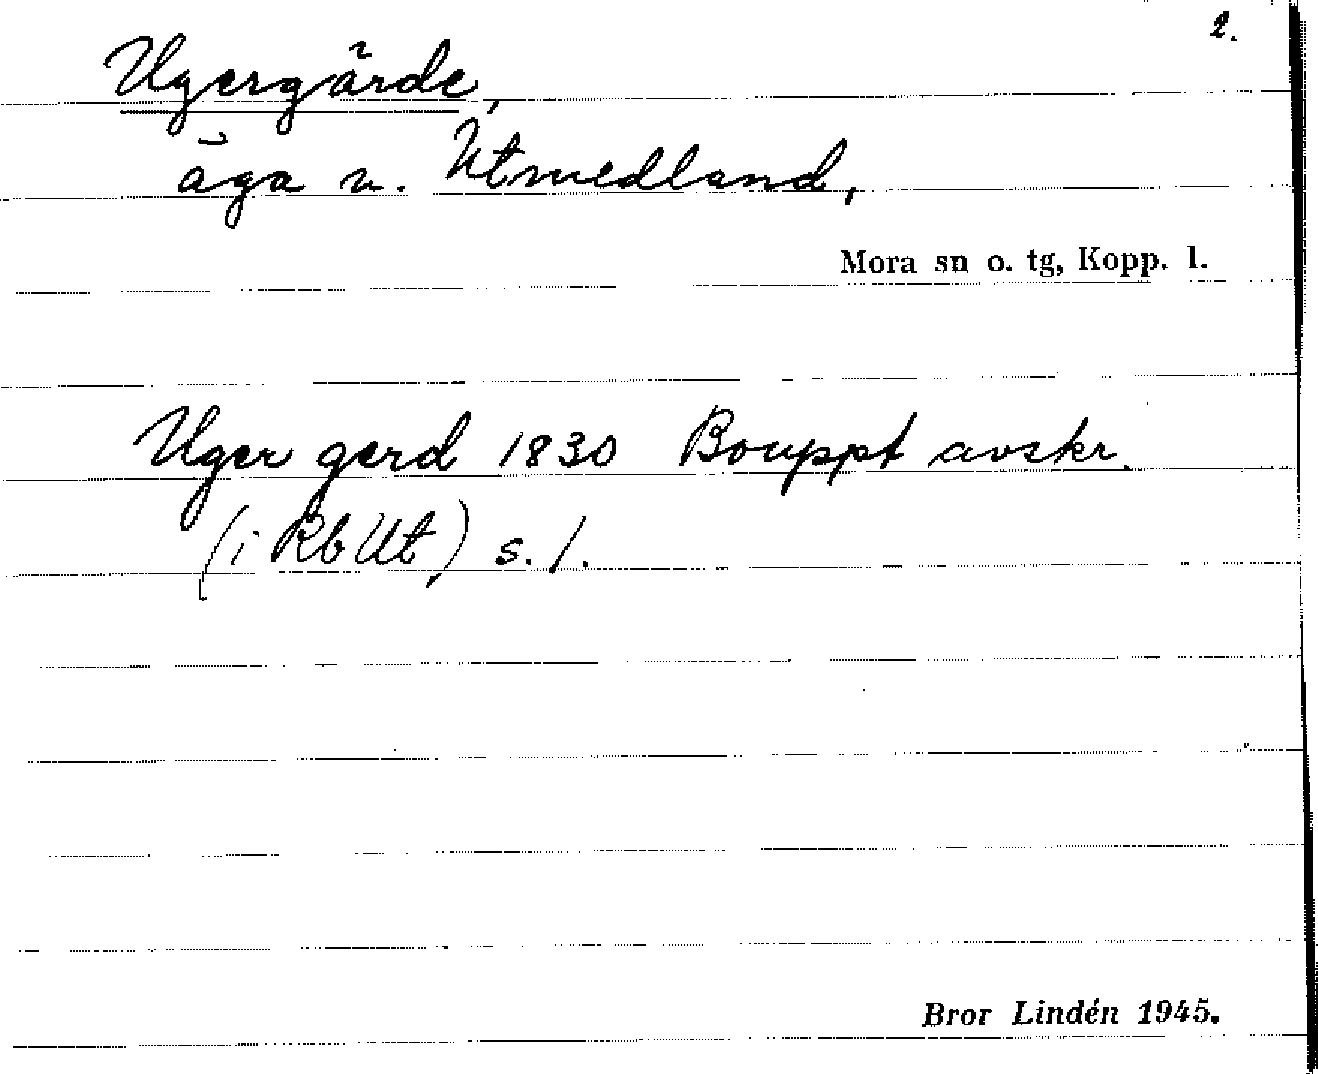 2.
Ugergärde,
äga n. Utmedland,
Mora sn o. tg, Kopp. l.
Uger gerd 1830 Bouppt avskr.
(i RbUt) s. 1.
Bror Lindén 1945.